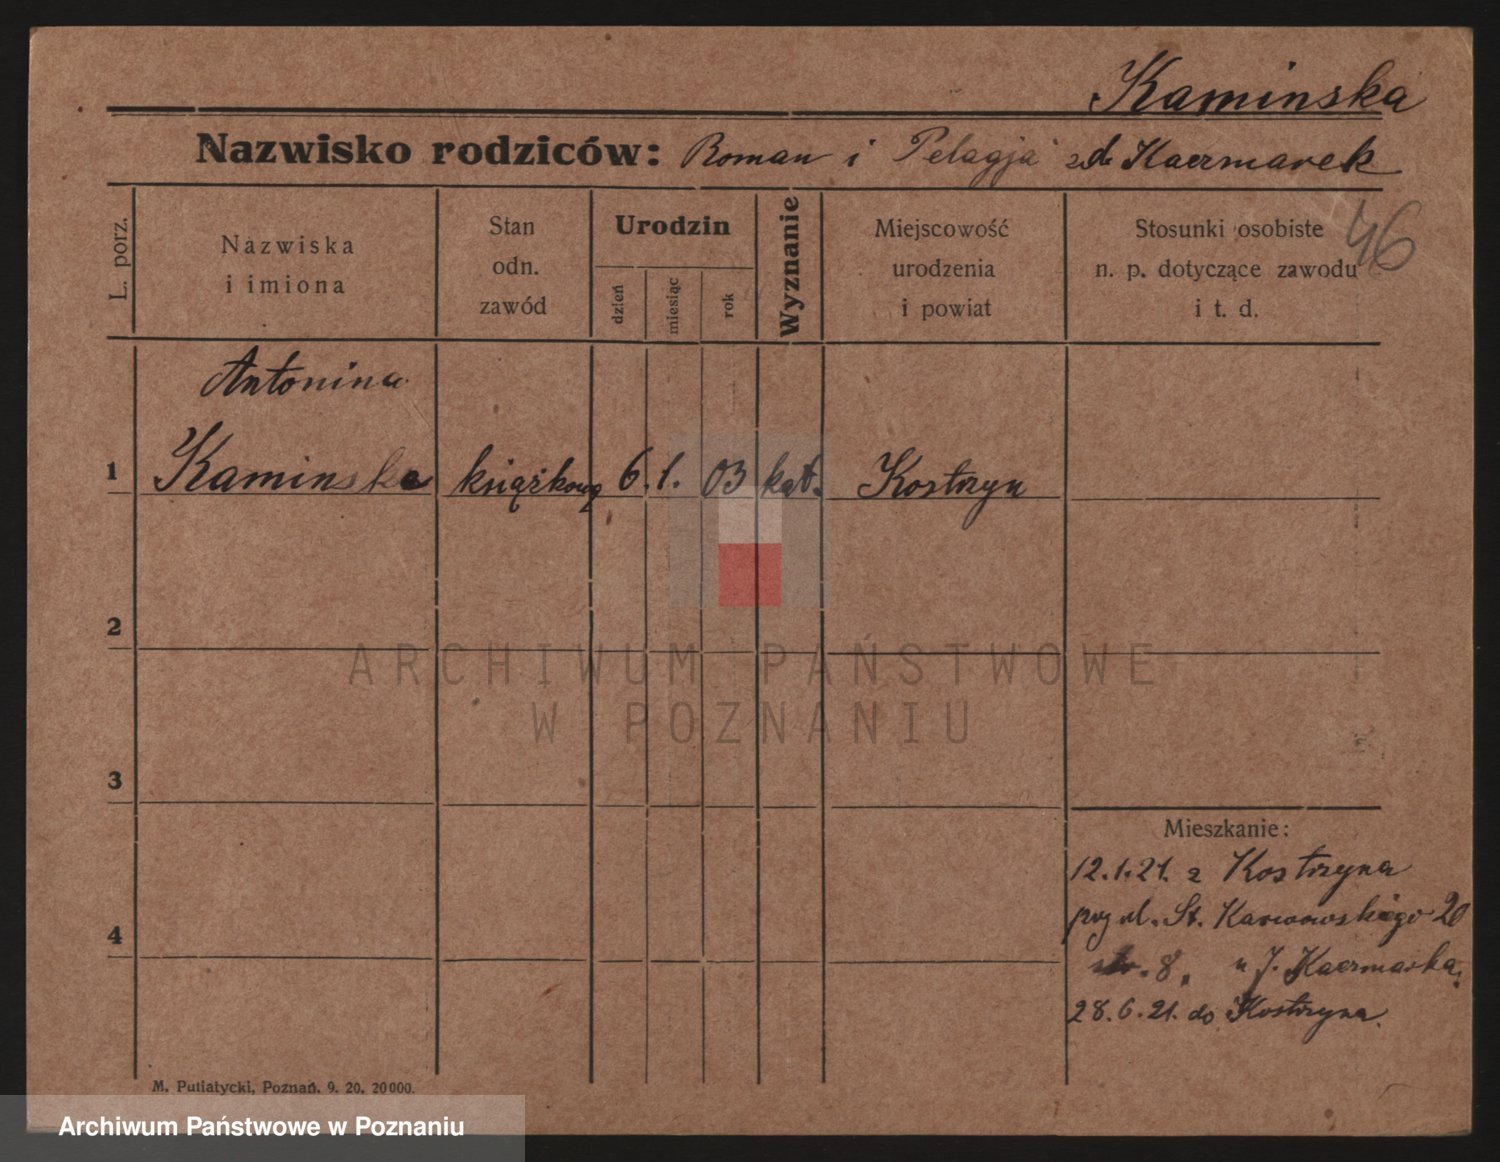 Kaminska
Nazwisko rodziców: Roman i Pelagja zd. Kaczmarek
46
L. porz.
Nazwiska
i imiona
Stan
odn.
zawód
Urodzin
dzień
miesiąc
rok
Wyznanie
Miejscowość
urodzenia
i powiat
Stosunki osobiste
n. p. dotyczące zawodu
i t. d.
Antonina
1 Kaminska książkową 6. 1. 03 kat. Kostrzyn
2
3
4
Mieszkanie:
12.1.21. z Kostrzyna
przy ul. St. Karwowskiego 20
8, u J. Kaczmarka.
28.6.21. do Kostrzyna.
M. Putiatycki, Poznań. 9. 20. 20000.
ARCHIWUM PAŃSTWOWE
W POZNANIU
Archiwum Państwowe w Poznaniu